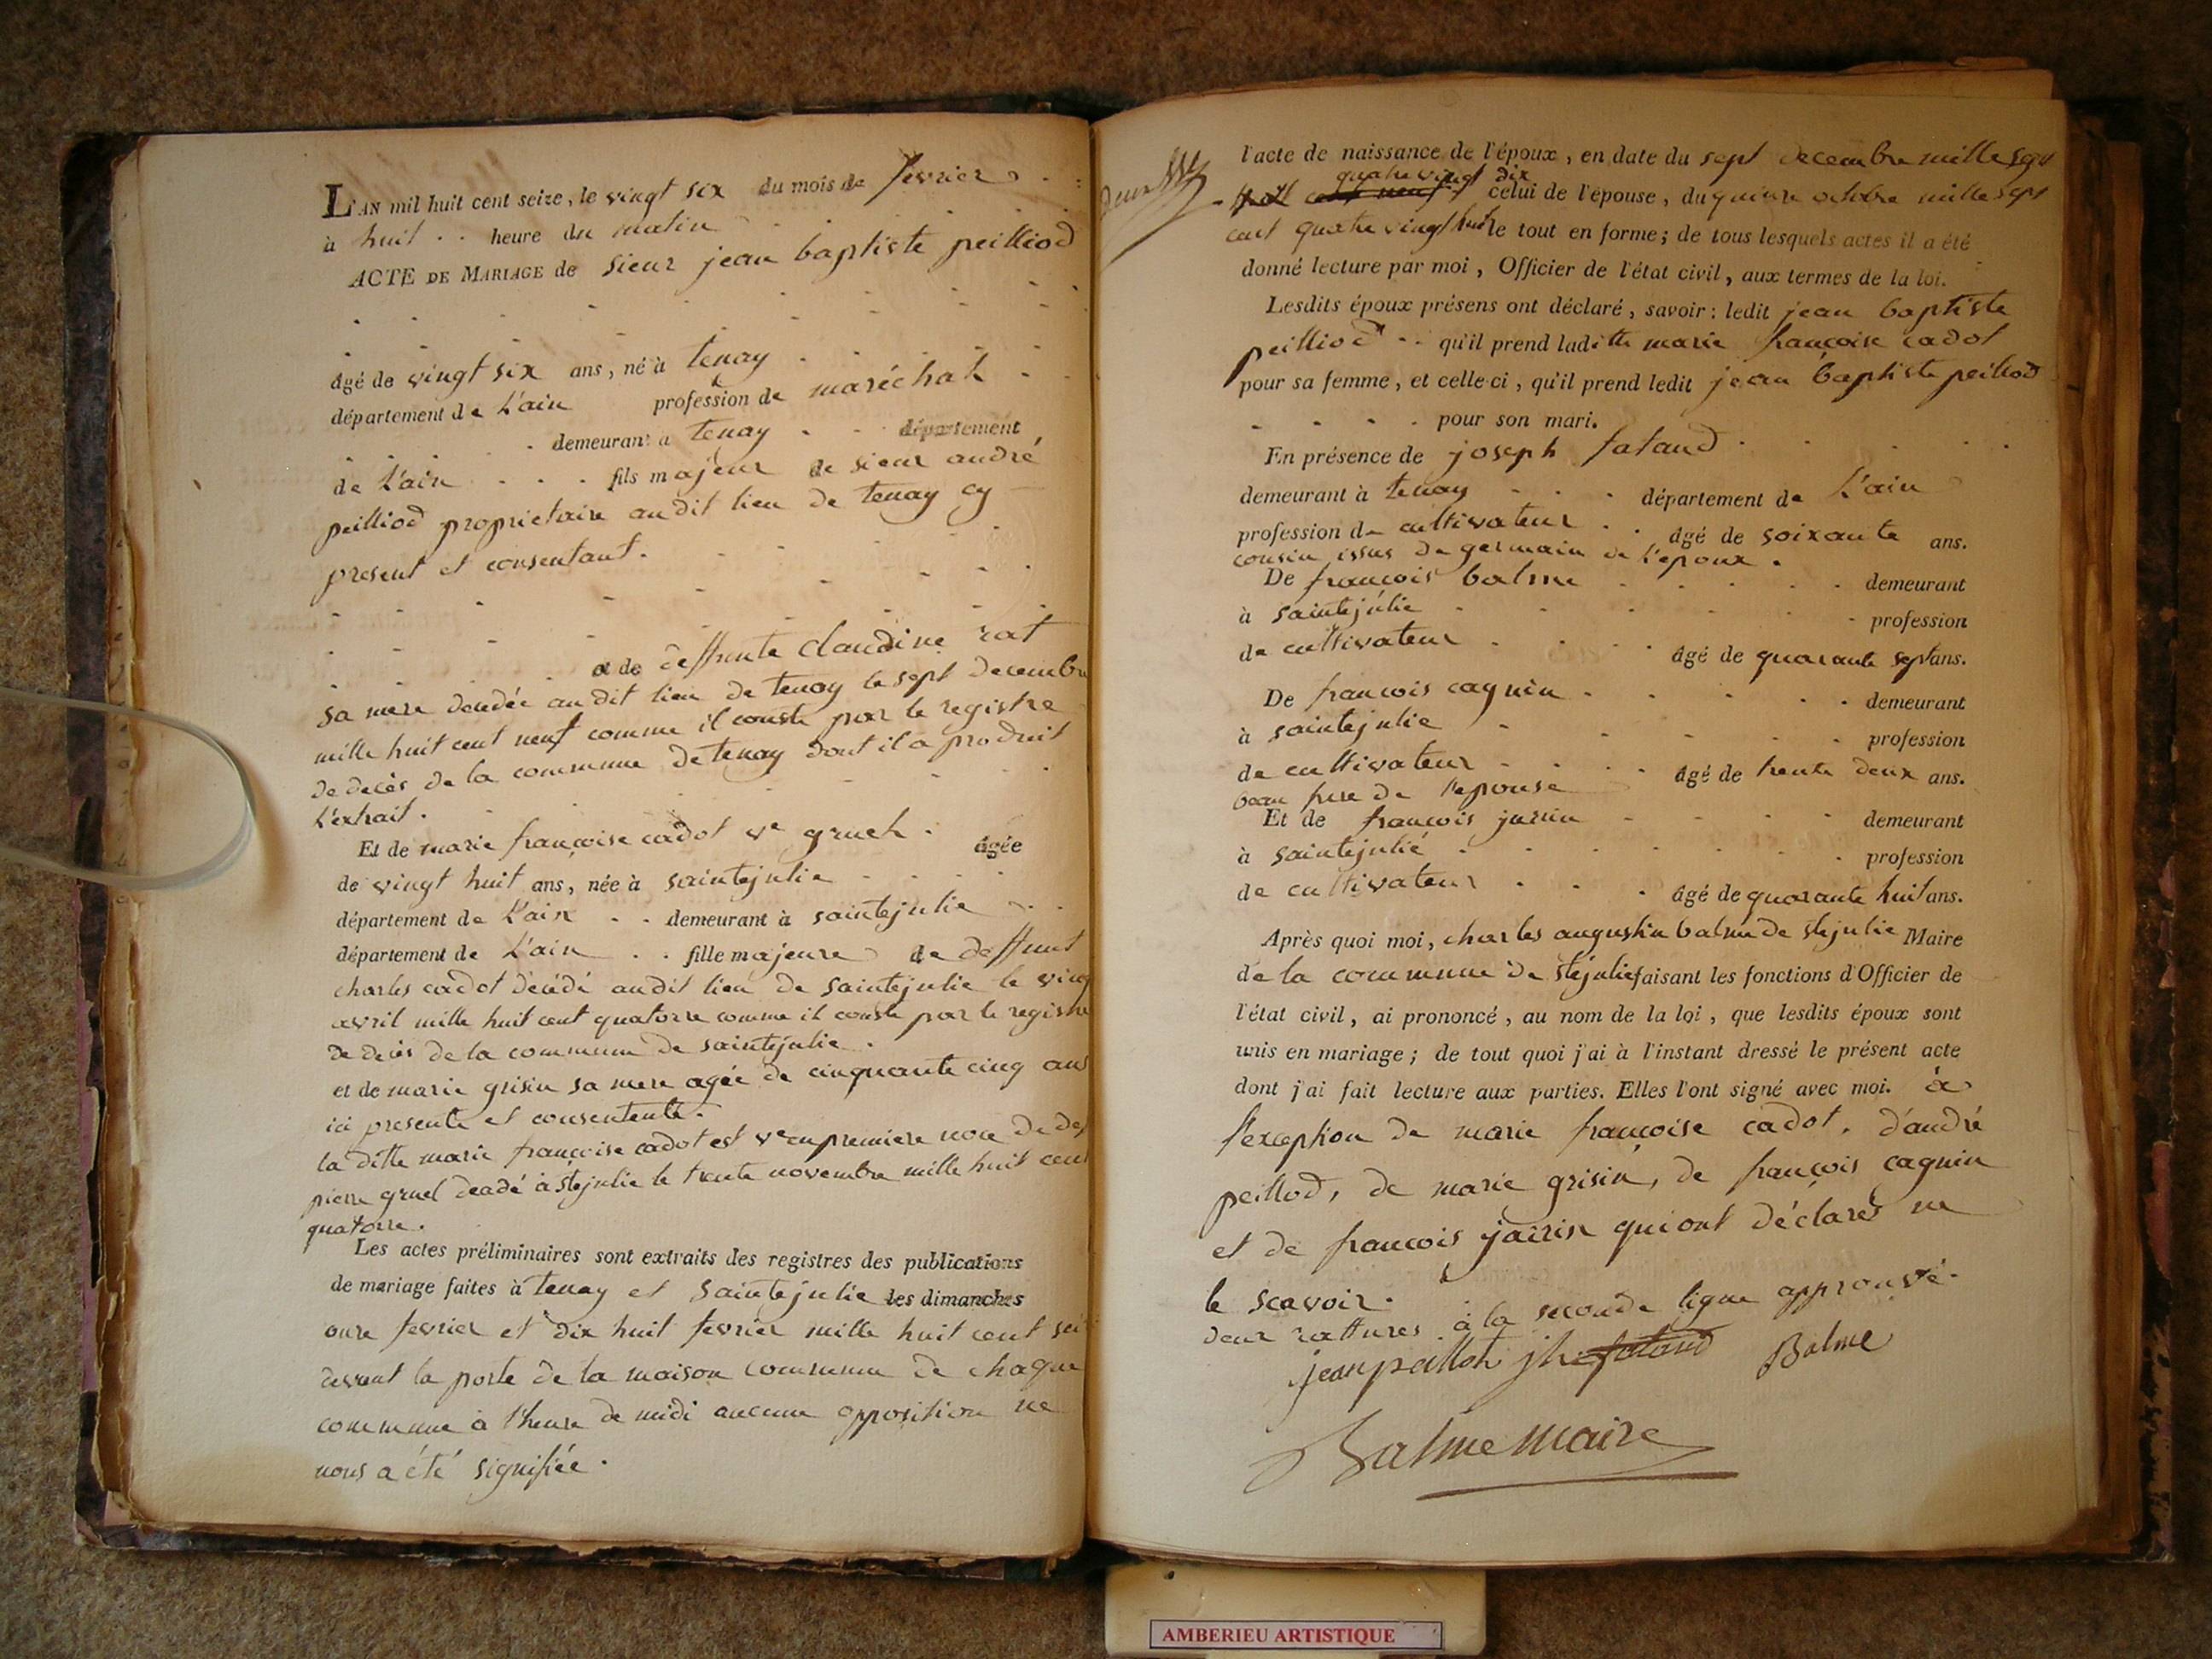 L'AN mil huit cent seize, le vingt six du mois de fevrier
à huit heure du matin
ACTE DE MARIAGE de sieur jean baptiste peilliod
âgé de vingt six ans, né à tenay
département de L'ain profession de maréchal
demeurant à tenay département
de L'ain fils majeur de sieur andré
peilliod proprietaire audit lieu de tenay cy
present et consentant.
et de deffunte claudine rat
sa mere décédée audit lieu de tenay le sept decembre
mille huit cent neuf comme il conste par le registre
de decès de la commune de tenay dont il a produit
L'extrait.
Et de marie françoise cadot ve gruel âgée
de vingt huit ans, née à saintejulie
département de L'ain demeurant à saintejulie
département de L'ain fille majeure de deffunt
charles cadot décédé audit lieu de saintejulie le ving
avril mille huit cent quatorze comme il conste par le registre
de decès de la commune de saintejulie.
et de marie grisin sa mere agée de cinquante cinq ans
ici presente et consentente.
la ditte marie françoise cadot est ve en premiere noce de def
pierre gruel decadé à stejulie le trente novembre mille huit cent
quatorze.
Les actes préliminaires sont extraits des registres des publications
de mariage faites à tenay et saintejulie les dimanches
onze fevrier et dix huit fevrier mille huit cent sei
devant la porte de la maison commune de chaque
commune à l'heure de midi aucune opposition ne
nous a été signifiée.
l'acte de naissance de l'époux, en date du sept decembre mille sept
quatre vingt dix
celui de l'épouse, du quinze octobre mille sept
cent quatre vingt huit le tout en forme; de tous lesquels actes il a été
donné lecture par moi, Officier de l'état civil, aux termes de la loi.
Lesdits époux présens ont déclaré, savoir: ledit jean baptiste
peilliod qu'il prend laditte marie françoise cadot
pour sa femme, et celle-ci, qu'il prend ledit jean baptiste peillod
pour son mari.
En présence de joseph fataud
demeurant à tenay département de L'ain
profession de cultivateur âgé de soixante ans.
cousin issus de germain de L'epoux.
De françois balme demeurant
à saintejulie profession
de cultivateur âgé de quarante sept ans.
De francois cagnin demeurant
à saintejulie profession
de cultivateur âgé de trente deux ans.
beau frere de l'epouse
Et de françois juenin demeurant
à saintejulie profession
de cultivateur âgé de quarante huit ans.
Après quoi moi, charles augustin balme de stejulie Maire
de la commune de stejulie faisant les fonctions d'Officier de
l'état civil, ai prononcé, au nom de la loi, que lesdits époux sont
unis en mariage; de tout quoi j'ai à l'instant dressé le présent acte
dont j'ai fait lecture aux parties. Elles l'ont signé avec moi. à
l'exception de marie françoise cadot, d'andré
peillod, de marie grisin, de françois cagnin
et de françois qui ont déclarés ne
le scavoir.
deux rattures à la seconde ligne approuvé.
jean peillod jh fataud Balme
Balme maire
AMBERIEU ARTISTIQUE